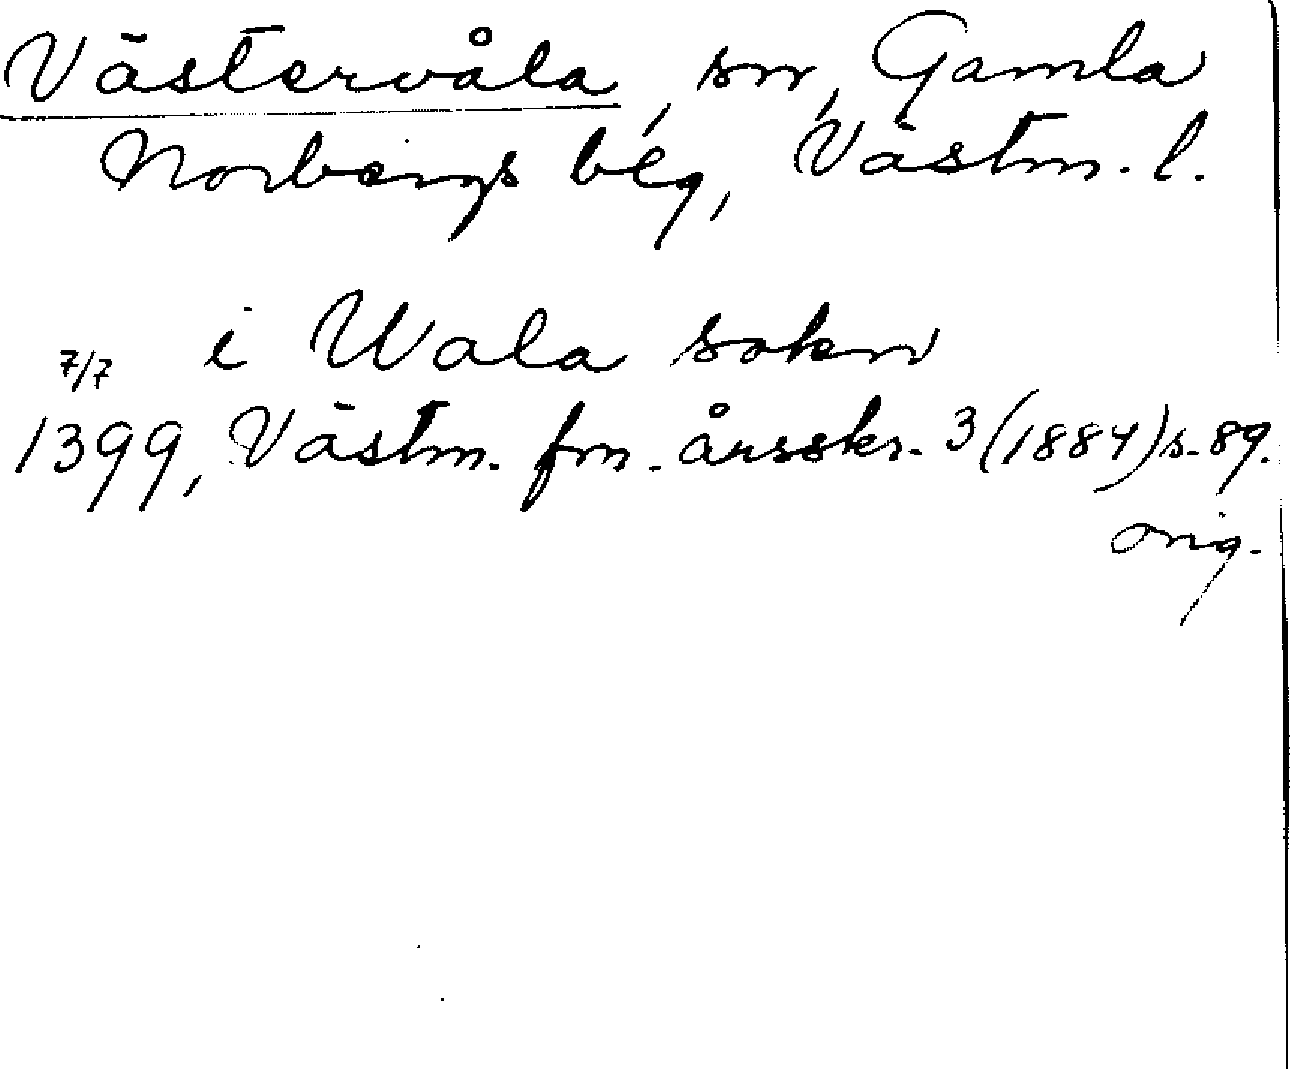 Västervåla, sn, Gamla
Norbergs blg, Västm. l.
i Wala sokn
7/7
1399, Västm. fm. årsskr. 3 (1884) s. 89.
orig.